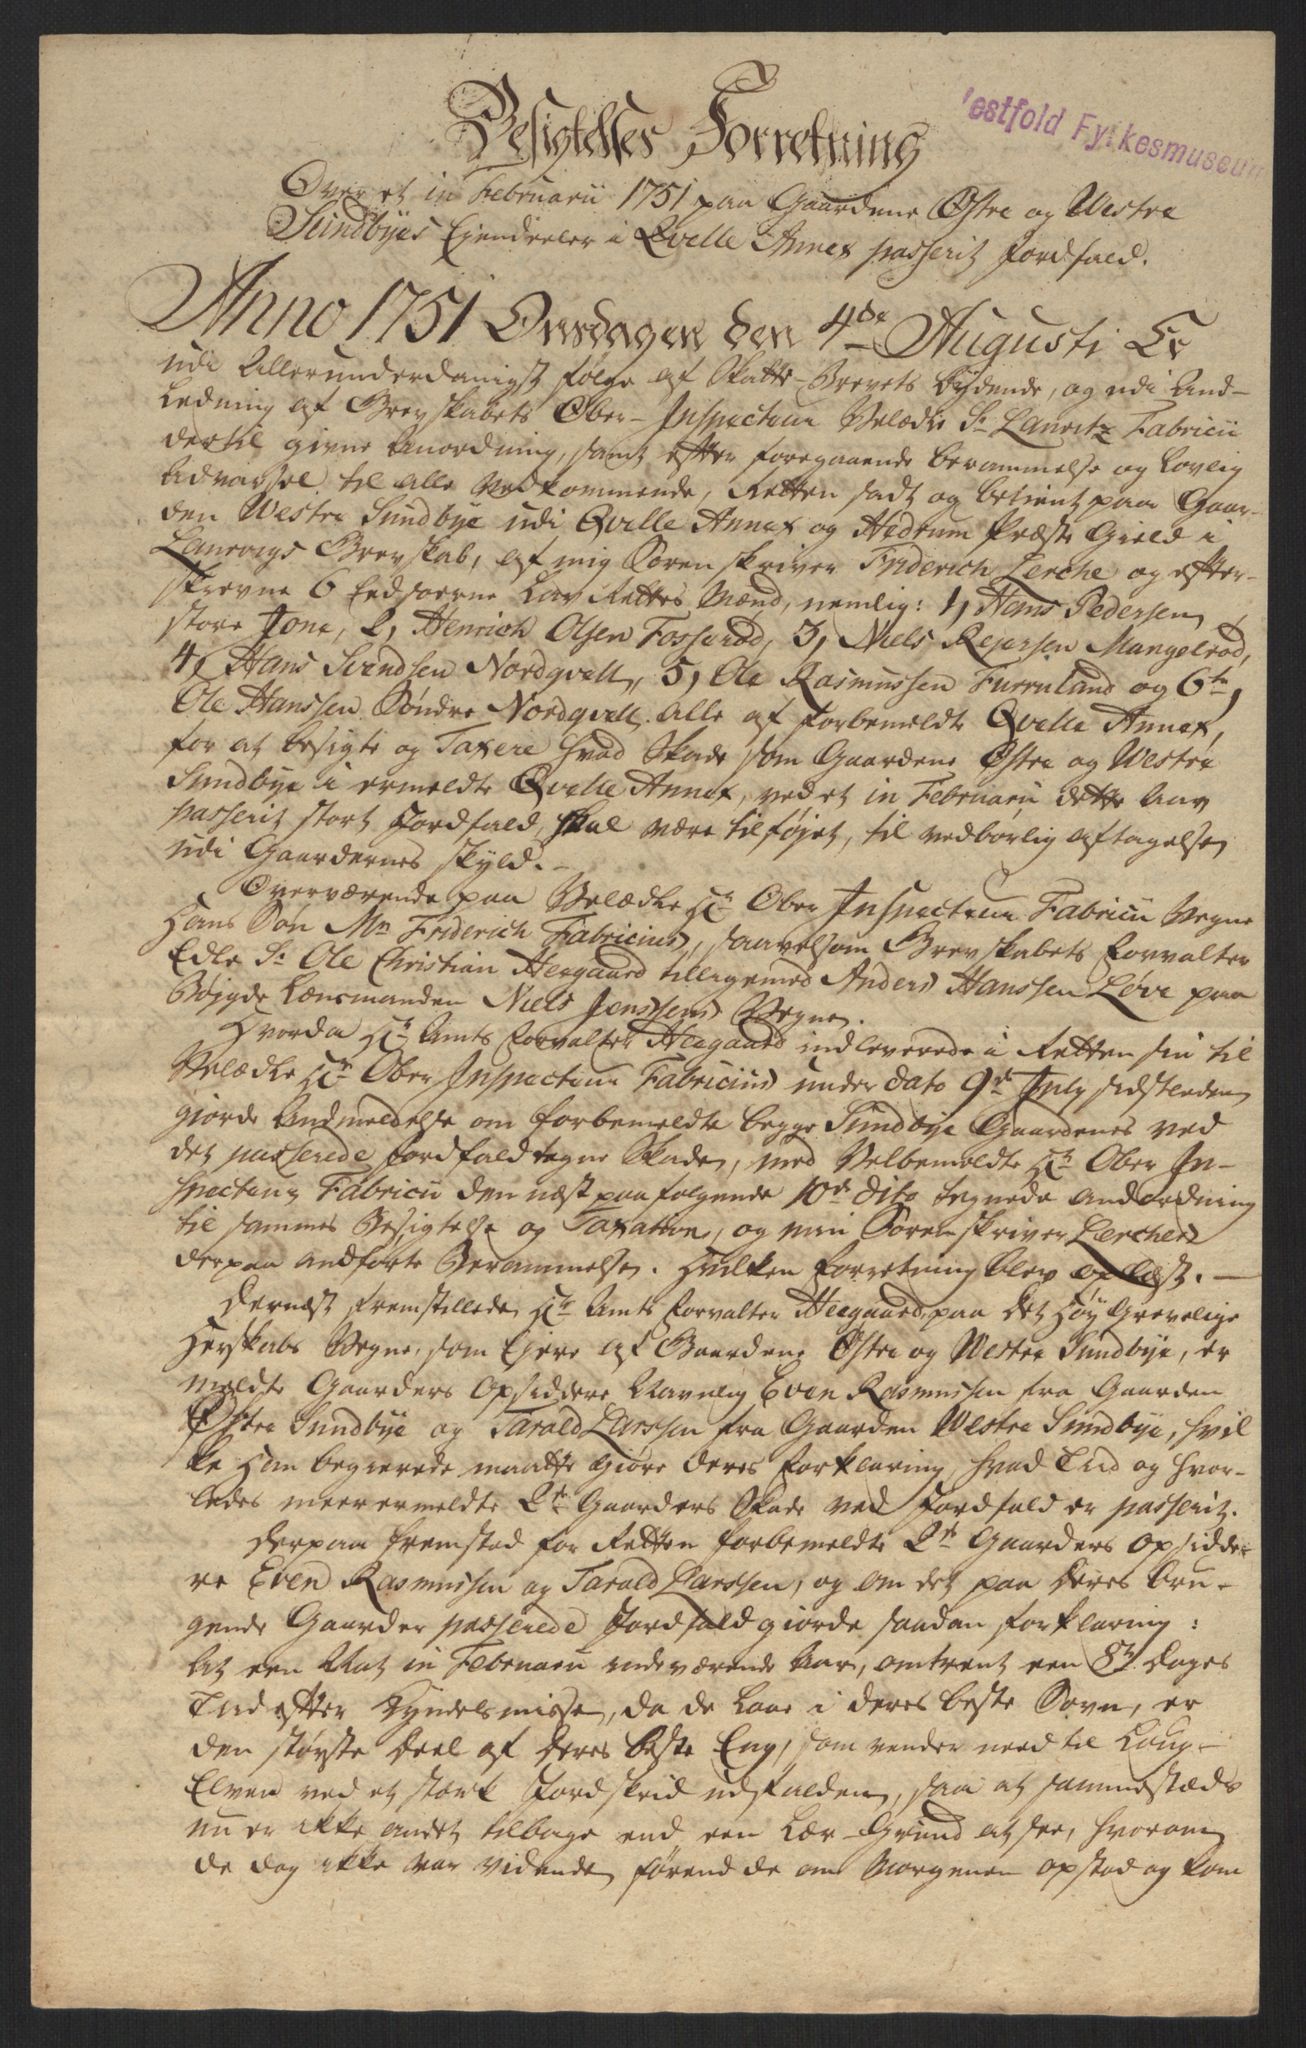 Vestfold Fylkesmuseum
Besigtelses Forretning
Over et in Februarii 1751 paa Gaardene Østre og Westre
Sundbyes Ejendeeler i Qvelle Annex passerit Jordfald.
Anno 1751 Onsdagen den 4de Augusti Er
udi Allerunderdanigst følge af Skatte-Brevets bydende, og udi And-
Ledning af Grevskabets Ober-Inspecteur Velædle Sr. Lauritz Fabricii
dertil givne Anordning, samt efter foregaaende berammelse og Lovlig
Advarsel til alle Vedkommende, Retten sadt og betient paa Gaar-
den Westre Sundbye udi Qvelle Annex og Hedrum Præste Gield i
Laurvigs Grevskab, af mig Sorenskriver Friderich Lerche og efter-
skrevne 6 Eedsoerne Lav Rettes Mænd, nemlig: 1, Hans Pedersen
store Jone, 2, Henrich Olsen Fosserød, 3, Niels Rejersen Mangelrød,
4, Hans Svendsen Nordqvell, 5, Ole Rasmussen Furruland og 6te,
Ole Hanssen Søndre Nordqvell. Alle af forbemeldte Qvelle Annex,
for at besigte og Taxere hvad Skade som Gaardene Østre og Westre
Sundbye i ermeldte Qvelle Annex, ved et in Februarii dette Aar
passerit stort Jordfald, skal være tilføjet, til vedbørlig aftagelse
udi Gaardernes skyld.-
Overværende paa Velædle Hr. Ober Inspecteur Fabricii Vegne
Hans Søn Mr. Friderich Fabricius, saavelsom Grevskabets Forvalter
Edle Sr. Ole Christian Heegaard tilligemed Anders Hanssen Løve paa
Bøjgde Lænsmanden Niels Jenssens Vegne.
Hvorda Hr. Amts Forvalter Heegaard indleverede i Retten sin til
Velædle Hr. Ober Inspecteur Fabricius under dato 9de July sidstleden
giorde Andmeldelse om forbemeldte begge Sundbye Gaardenes ved
det passerede Jordfald tagne Skade, med Velbemeldte Hr. Ober In-
specteur Fabricii den næst paafølgende 10de dito tegnede Andordning
til sammes Besigtelse og Taxation, og min Sorenskriver Lerches
derpaa andførte Berammelse. Hvilken Forretning blev oplæst.-
Dernæst fremstillede Hr. Amts Forvalter Heegaard paa det Høy Grevelige
Herskabs Vegne, som Ejere af Gaardene Østre og Westre Sundbye, er
meldte Gaarders Opsiddere Navnlig Even Rasmussen fra Gaarden
Østre Sundbye og Tarald Larssen fra Gaarden Westre Sundbye, hvil
ke Han begierede maatte giøre deres Forklaring, hvad Tid og hvor-
ledes meerermeldte 2de Gaarders Skade ved Jordfald er passerit.
Derpaa fremstod for Retten forbemeldte 2de Gaarders Opsidde-
re Even Rasmussen og Tarald Larssen, og om det paa deres bru-
gende Gaarder passerede Jordfald giorde saadan Forklaring:
At een Nat in Februarii indeværende Aar, omtrent een 8te dages
Tid efter Kyndelsmisse, da de laae i deres beste Søvn, er
den største Deel af deres beste Eng, som vender need til Loug-
Elven ved et stork Jordskrid udfalden, saa at sammestæds
nu er ikke andet tilbage end een Leer-Grund at see, hvorom
de dog ikke var vidende førend de om Morgenen opstod og kom